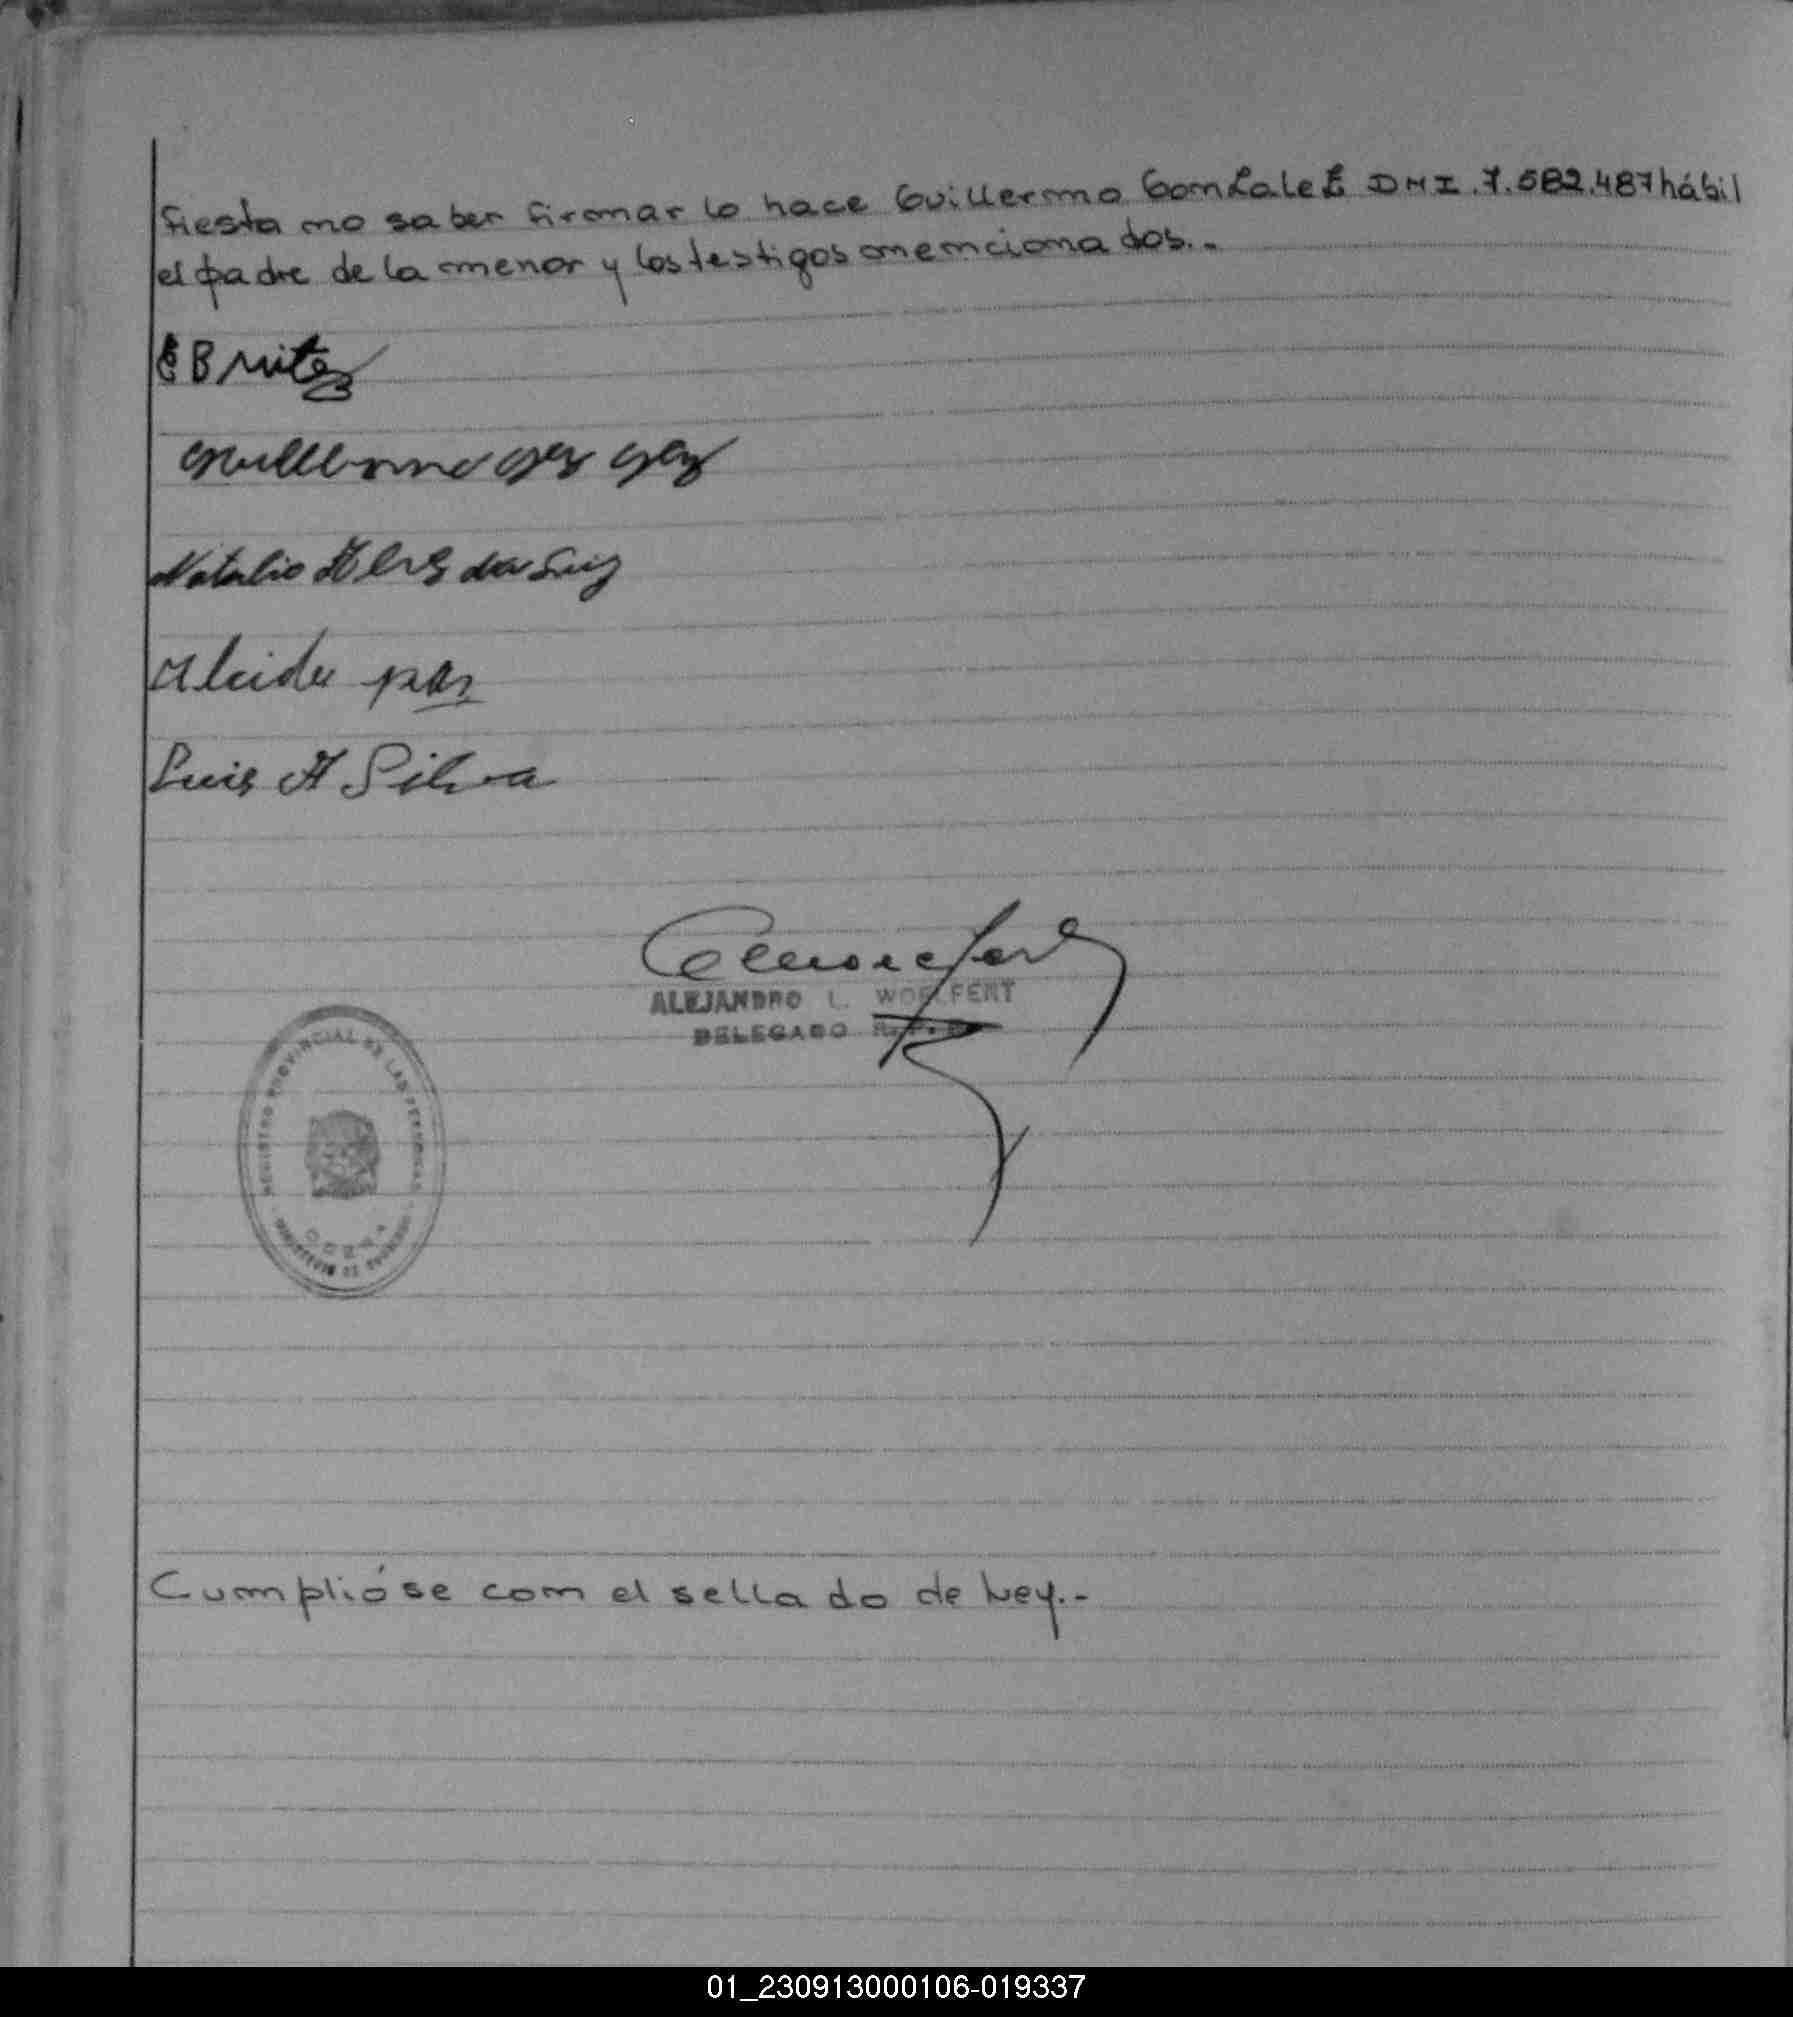 fiesta no saber firmar lo hace Guillermo Gonzalez DNI.7.582.487 hábil
el padre de la menor y los testigos mencionados.-
E Britez
Guillermo
Natalio
Alcides paz
Luis A Silva
ALEJANDRO L. WOLFERT
DELEGADO R.P.P.
REGISTRO PROVINCIAL DE LAS PERSONAS
MINISTERIO DE GOBIERNO
Cumplióse con el sellado de Ley.-
01_230913000106-019337